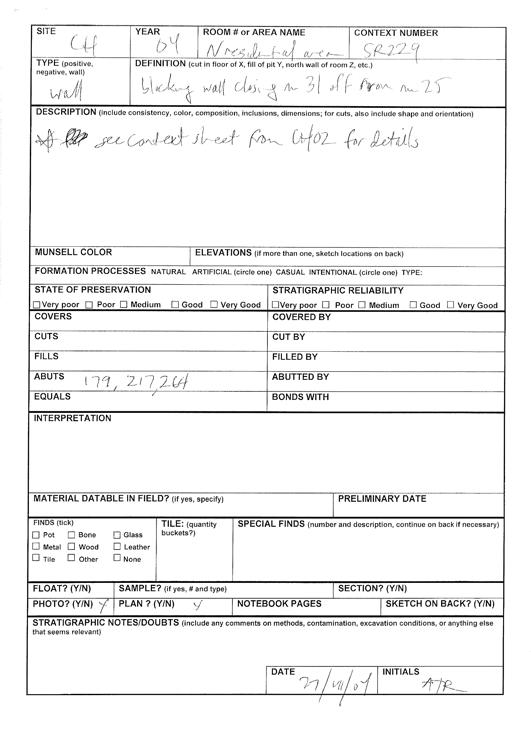 SITE YEAR ROOM # or AREA NAME CONTEXT NUMBER
CH 04 N residential area SR229
TYPE (positive, DEFINITION (cut in floor of X, fill of pit Y, north wall of room Z, etc.)
negative, wall)
wall blocking wall closing rm 31 off from rm 25
DESCRIPTION (include consistency, color, composition, inclusions, dimensions; for cuts, also include shape and orientation)
see context sheet from CH02 for details
MUNSELL COLOR ELEVATIONS (if more than one, sketch locations on back)
FORMATION PROCESSES NATURAL ARTIFICIAL (circle one) CASUAL INTENTIONAL (circle one) TYPE:
STATE OF PRESERVATION STRATIGRAPHIC RELIABILITY
☐Very poor ☐ Poor ☐ Medium ☐ Good ☐ Very Good ☐Very poor ☐ Poor ☐ Medium ☐ Good ☐ Very Good
COVERS COVERED BY
CUTS CUT BY
FILLS FILLED BY
ABUTS 179, 217, 264 ABUTTED BY
EQUALS BONDS WITH
INTERPRETATION
MATERIAL DATABLE IN FIELD? (if yes, specify) PRELIMINARY DATE
FINDS (tick) TILE: (quantity SPECIAL FINDS (number and description, continue on back if necessary)
buckets?)
☐ Pot ☐ Bone ☐ Glass
☐ Metal ☐ Wood ☐ Leather
☐ Tile ☐ Other ☐ None
FLOAT? (Y/N) SAMPLE? (if yes, # and type) SECTION? (Y/N)
PHOTO? (Y/N) Y PLAN ? (Y/N) Y NOTEBOOK PAGES SKETCH ON BACK? (Y/N)
STRATIGRAPHIC NOTES/DOUBTS (include any comments on methods, contamination, excavation conditions, or anything else
that seems relevant)
DATE INITIALS
27/VII/04 ATR